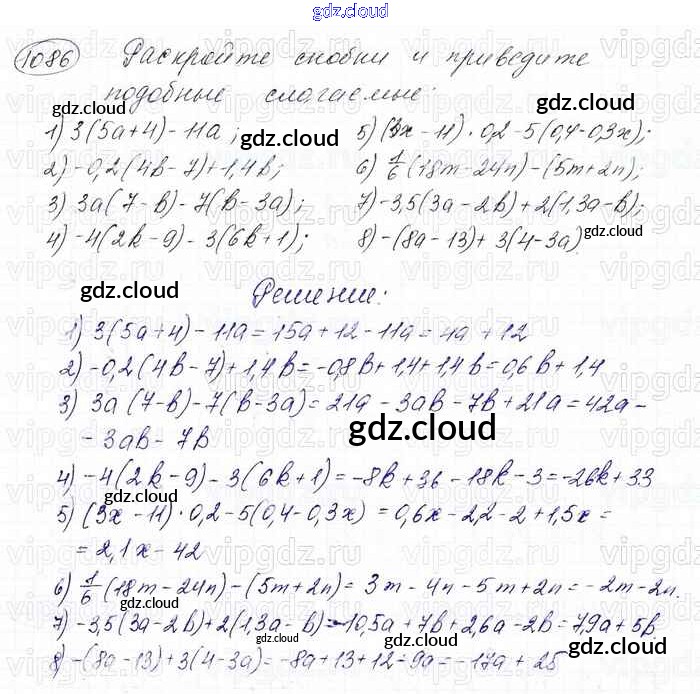 gdz.cloud
1086 Раскройте скобки и приведите
подобные слагаемые:
1) 3(5a+4)-11a; 5) (3x-11)·0,2-5(0,4-0,3x);
2) -0,2(4b-7)+1,4b; 6) 1/6(18m-24n)-(5m+2n);
3) 3a(7-b)-7(b-3a); 7) -3,5(3a-2b)+2(1,3a-b);
4) -4(2k-9)-3(6k+1); 8) -(8a-13)+3(4-3a)
Решение:
1) 3(5a+4)-11a=15a+12-11a=4a+12
2) -0,2(4b-7)+1,4b=-0,8b+1,4+1,4b=0,6b+1,4
3) 3a(7-b)-7(b-3a)=21a-3ab-7b+21a=42a-
-3ab-7b
4) -4(2k-9)-3(6k+1)=-8k+36-18k-3=-26k+33
5) (3x-11)·0,2-5(0,4-0,3x)=0,6x-2,2-2+1,5x=
=2,1x-42
6) 1/6(18m-24n)-(5m+2n)=3m-4n-5m+2n=-2m-2n.
7) -3,5(3a-2b)+2(1,3a-b)=-10,5a+7b+2,6a-2b=7,9a+5b
8) -(8a-13)+3(4-3a)=-8a+13+12-9a=-17a+25